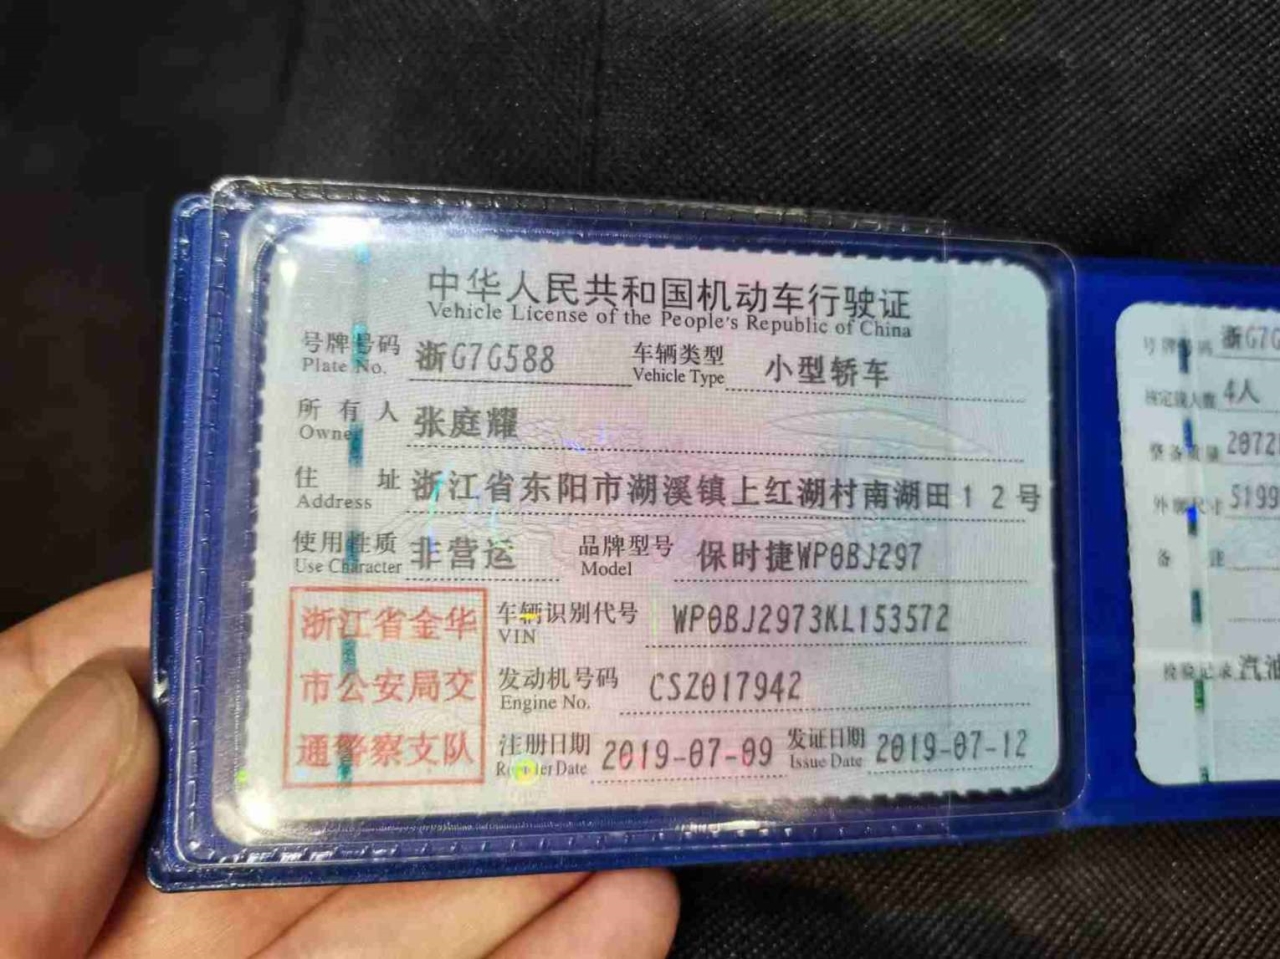 中华人民共和国机动车行驶证
Vehicle License of the People's Republic of China
号牌号码 浙G7G588 车辆类型 小型轿车
Plate No. Vehicle Type
所有人 张庭耀
Owner
住址 浙江省东阳市湖溪镇上红湖村南湖田12号
Address
使用性质 非营运 品牌型号 保时捷WP0BJ297
Use Character Model
浙江省金华
市公安局交
通警察支队
车辆识别代号 WP0BJ2973KL153572
VIN
发动机号码 CSZ017942
Engine No.
注册日期 2019-07-09 发证日期 2019-07-12
Register Date Issue Date
号牌号码 浙G7G
核定载人数 4人
整备质量 2072
外廓尺寸 5199
备注
检验记录 汽油